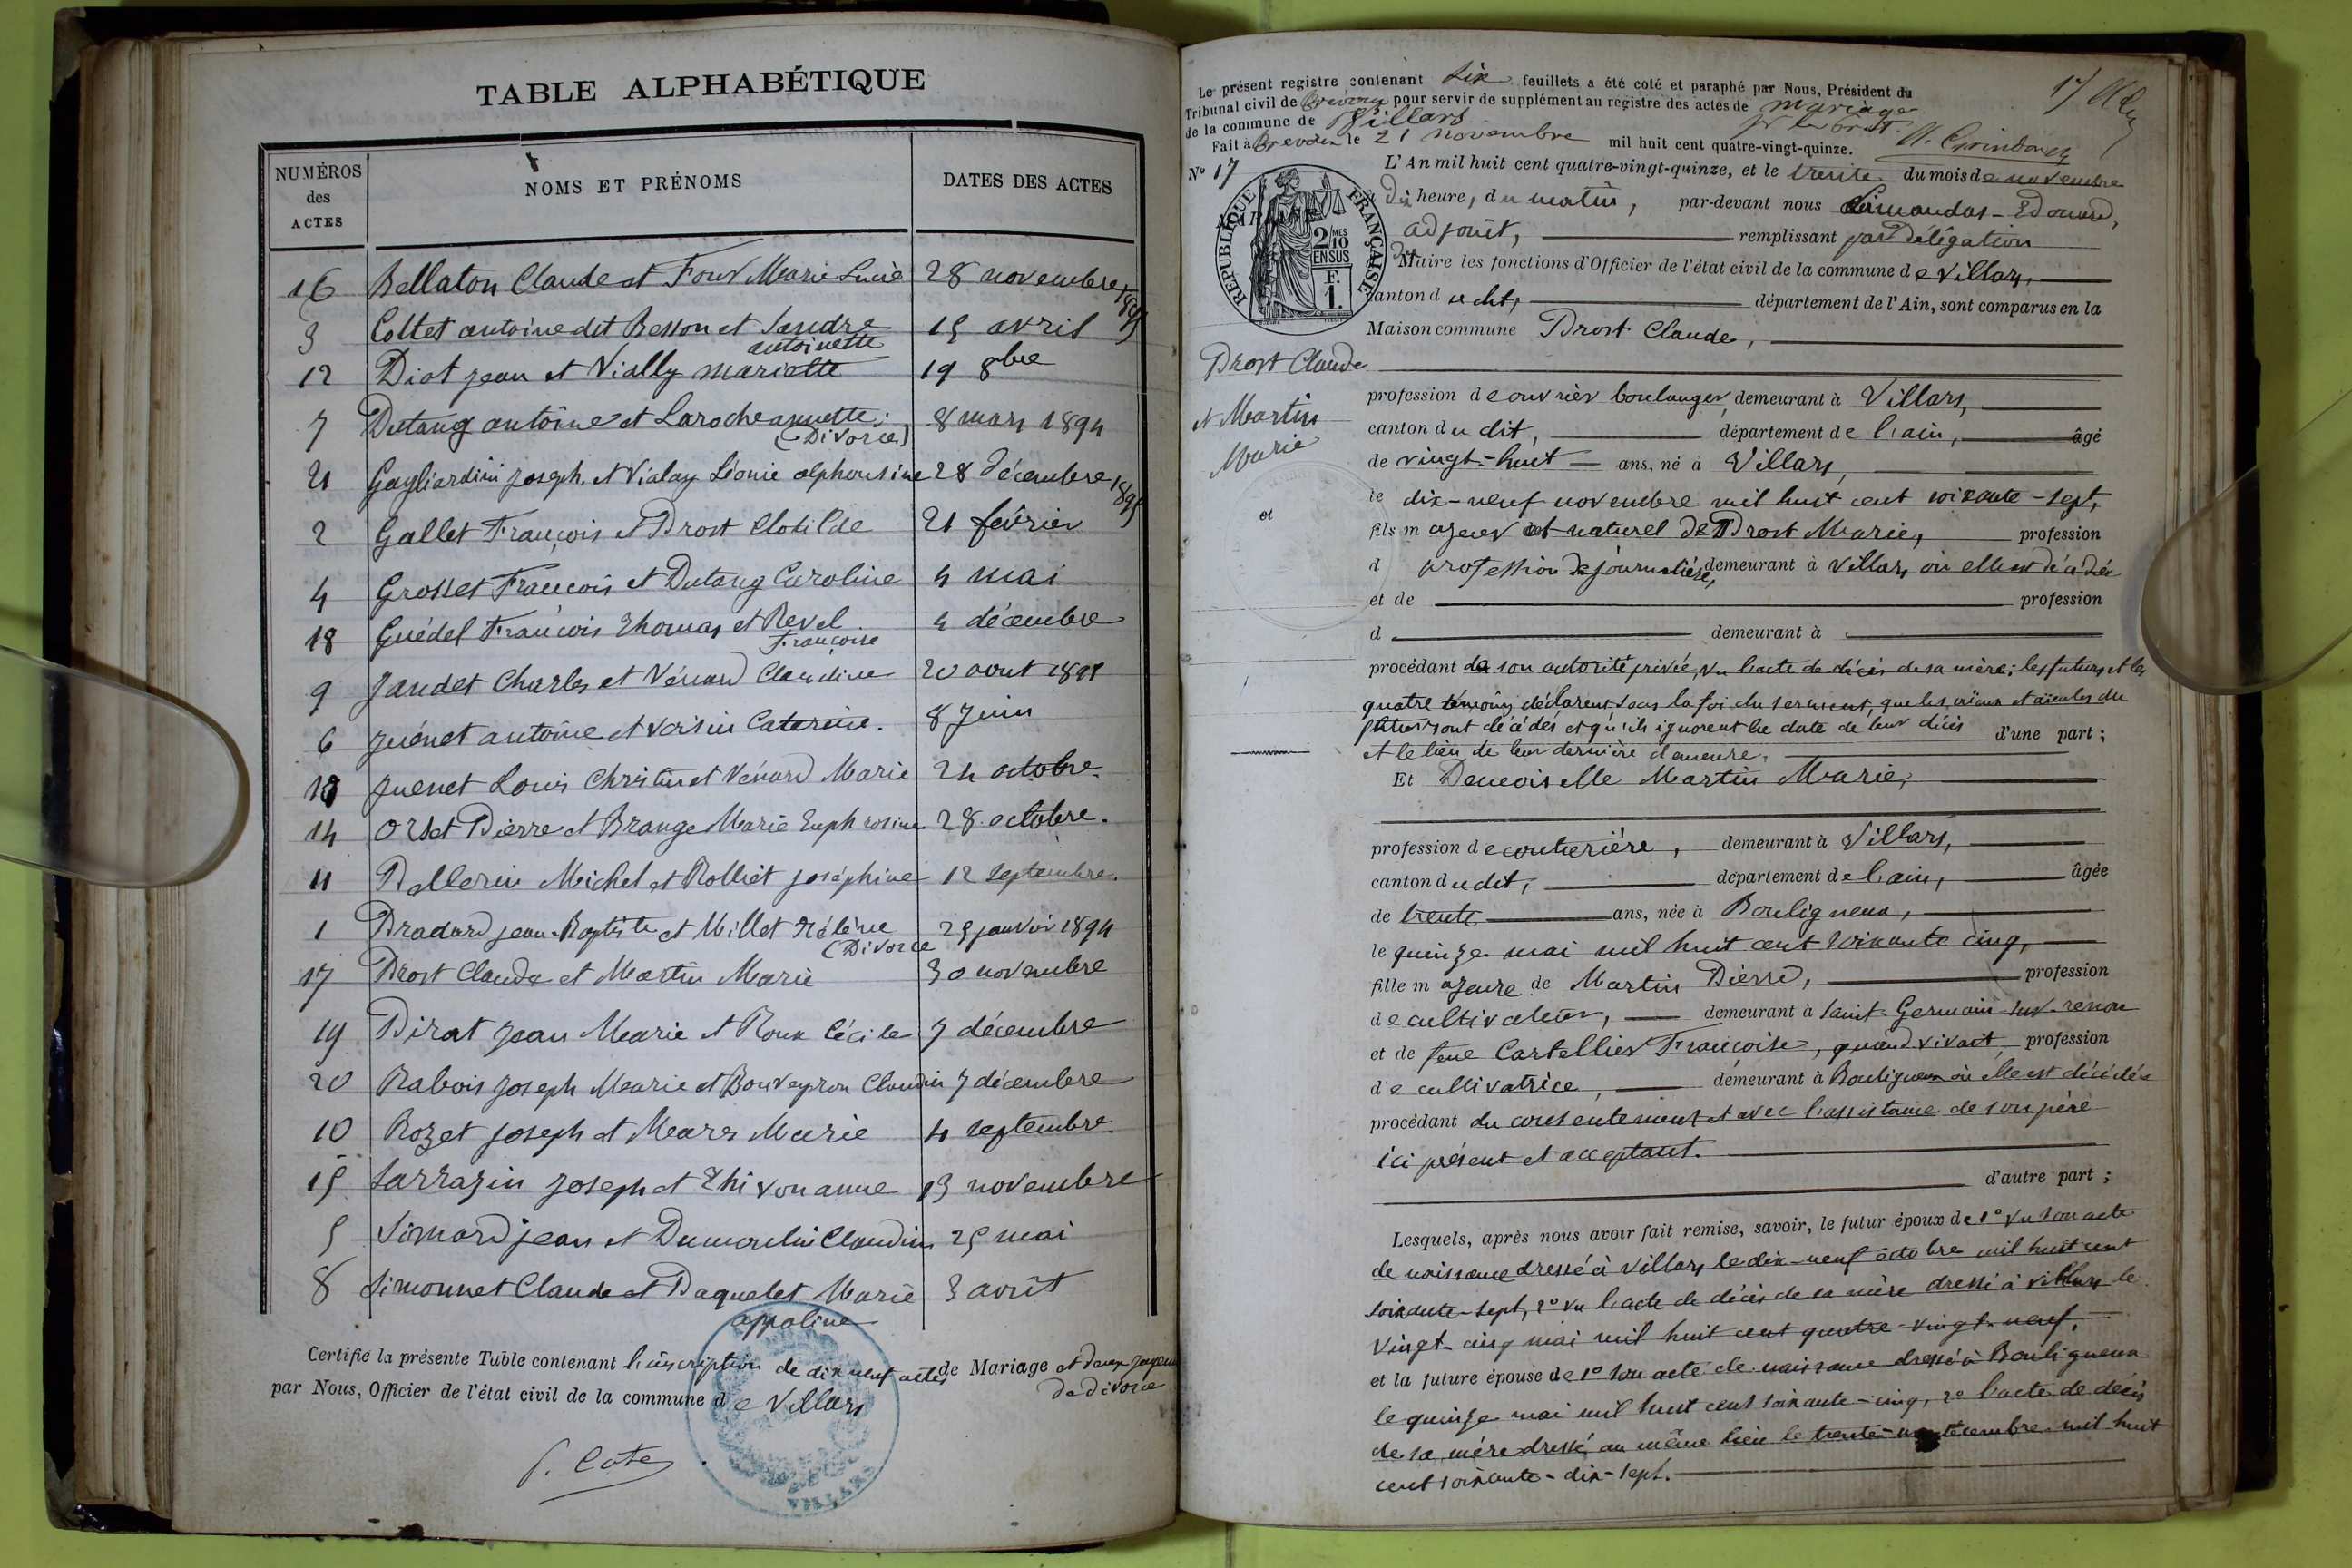 TABLE ALPHABÉTIQUE
NUMÉROS des ACTES
NOMS ET PRÉNOMS
DATES DES ACTES
16 Bellaton Claude et Four Marie Lucie 28 novembre 1895
3 Collet antoine dit Besson et Sandre antoinette 15 avril
12 Diot jean et Vially mariette 19 8bre
7 Dutang antoine et Laroche annette (Divorce) 8 mars 1894
21 Gagliardini joseph et Vialay Léonie alphonsine 28 décembre 1895
2 Gallet François et Prost Clotilde 21 février
4 Grosset François et Dutang Caroline 4 mai
18 Guédel François Thomas et Revel Françoise 4 décembre
9 Jandet Charles et Vénard Claudine 20 aout 1895
6 Juénet antoine et Voisin Caterine. 8 Juin
13 Juenet Louis Christin et Vénard Marie 24 octobre.
14 Orset Pierre et Brange Marie Euphrosine 28 octobre.
11 Pellerin Michel et Rolliet joséphine 12 septembre.
1 Pradard jean-Baptiste et Millet Hélène (Divorce 29 janvier 1894
17 Prost Claude et Martin Marie 30 novembre
19 Pirat jean Marie et Roux Cécile 7 décembre
20 Rabois joseph Marie et Bouveyron Claudin 7 décembre
10 Rozet joseph et Mears Marie 4 septembre.
15 Sarrazin joseph et Thivon anne 13 novembre
5 Simard jean et Dumoulin Claudine 25 mai
8 Simonnet Claude et Paquelet Marie appoline 3 août
Certifie la présente Table contenant l'inscription de dix neuf actes de Mariage et deux
par Nous, Officier de l'état civil de la commune de Villars de divorce
Le présent registre contenant six feuillets a été coté et paraphé par Nous, Président du
Tribunal civil de Trévoux pour servir de supplément au registre des actes de mariage
de la commune de Villars
Fait à Trévoux le 21 novembre mil huit cent quatre-vingt-quinze.
N° 17
L'An mil huit cent quatre-vingt-quinze, et le trente du mois de novembre
à dix heure, du matin, par-devant nous Limandas - Edouard,
adjoint, remplissant par délégation
du Maire les fonctions d'Officier de l'état civil de la commune de Villars,
canton du dit, département de l'Ain, sont comparus en la
Maison commune Prost Claude,
RÉPUBLIQUE FRANÇAISE
2 MES 10 EN SUS
F. 1.
Prost Claude
et Martin
Marie
profession de ouvrier boulanger, demeurant à Villars,
canton du dit, département de l'ain, âgé
de vingt-huit ans, né à Villars,
le dix-neuf novembre mil huit cent soixante-sept,
fils majeur et naturel de Prost Marie, profession
d profession de journalière, demeurant à Villars où elle est décédée
et de profession
d demeurant à
procédant de son autorité privée, vu l'acte de décès de sa mère; les futurs et les
quatre témoins déclarent sous la foi du serment, que les aïeux et aïeules du
futur sont décédés et qu'ils ignorent la date de leur décès d'une part;
et le lieu de leur dernière demeure.
Et Demoiselle Martin Marie,
profession de couturière, demeurant à Villars,
canton du dit, département de l'ain, âgée
de trente ans, née à Bouligneux,
le quinze mai mil huit cent soixante cinq,
fille majeure de Martin Pierre, profession
de cultivateur, demeurant à Saint-Germain-sur-renon
et de feue Cartellier Françoise, quand vivait profession
de cultivatrice, demeurant à Bouligneux où elle est décédée
procédant du consentement et avec l'assistance de son père
ici présent et acceptant.
d'autre part;
Lesquels, après nous avoir fait remise, savoir, le futur époux de 1° vu son acte
de naissance dressé à Villars le dix-neuf octobre mil huit cent
soixante-sept, 2° vu l'acte de décès de sa mère dressé à Villars le
vingt-cinq mai mil huit cent quatre-vingt-neuf,
et la future épouse de 1° son acte de naissance dressé à Bouligneux
le quinze mai mil huit cent soixante-cinq, 2° l'acte de décès
de sa mère dressé au même lieu le trente-un décembre mil huit
cent soixante-dix-sept.